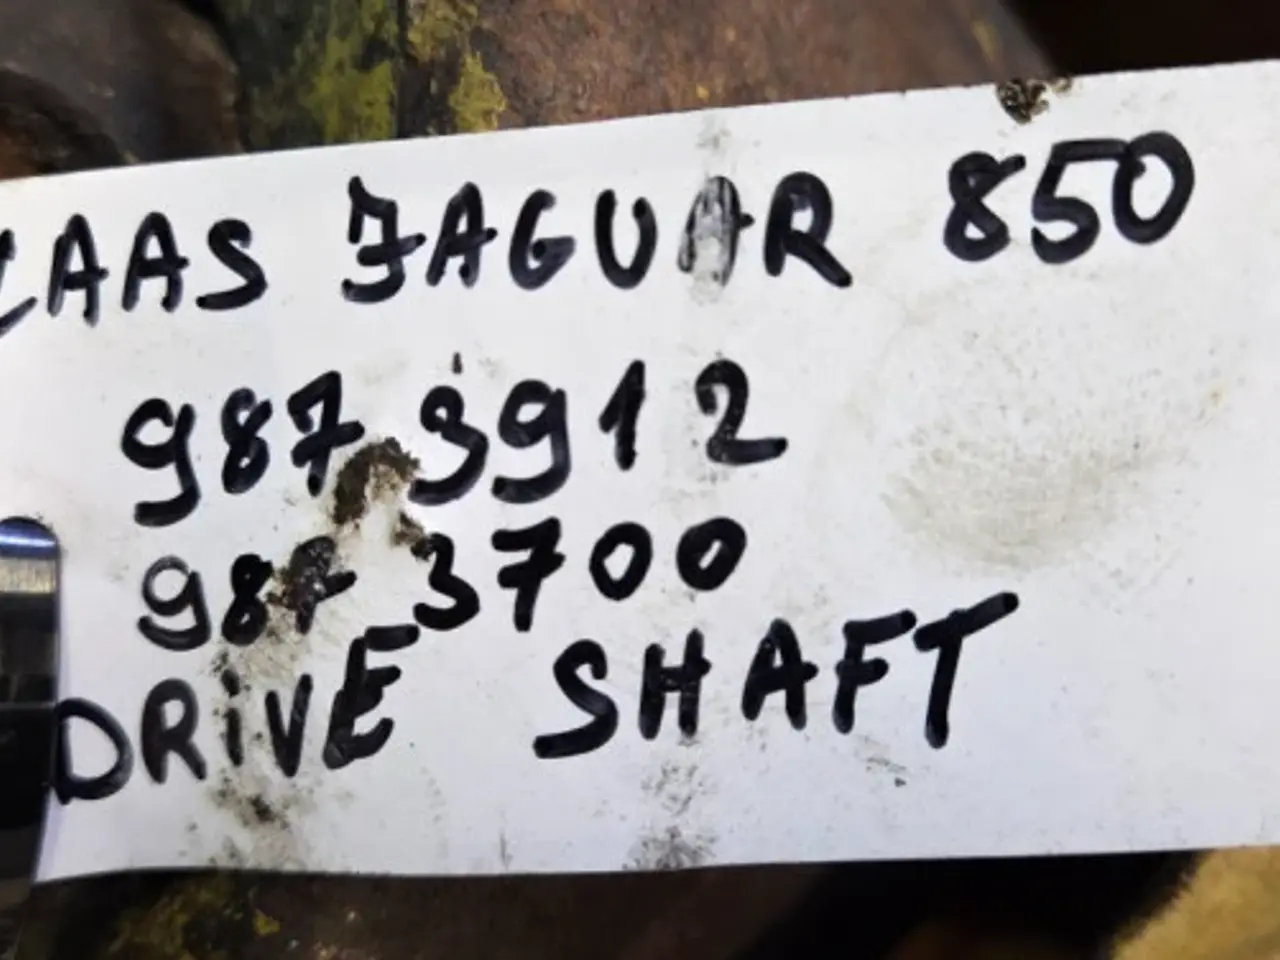 CLAAS JAGUAR 850
987 3912
987 3700
DRIVE SHAFT